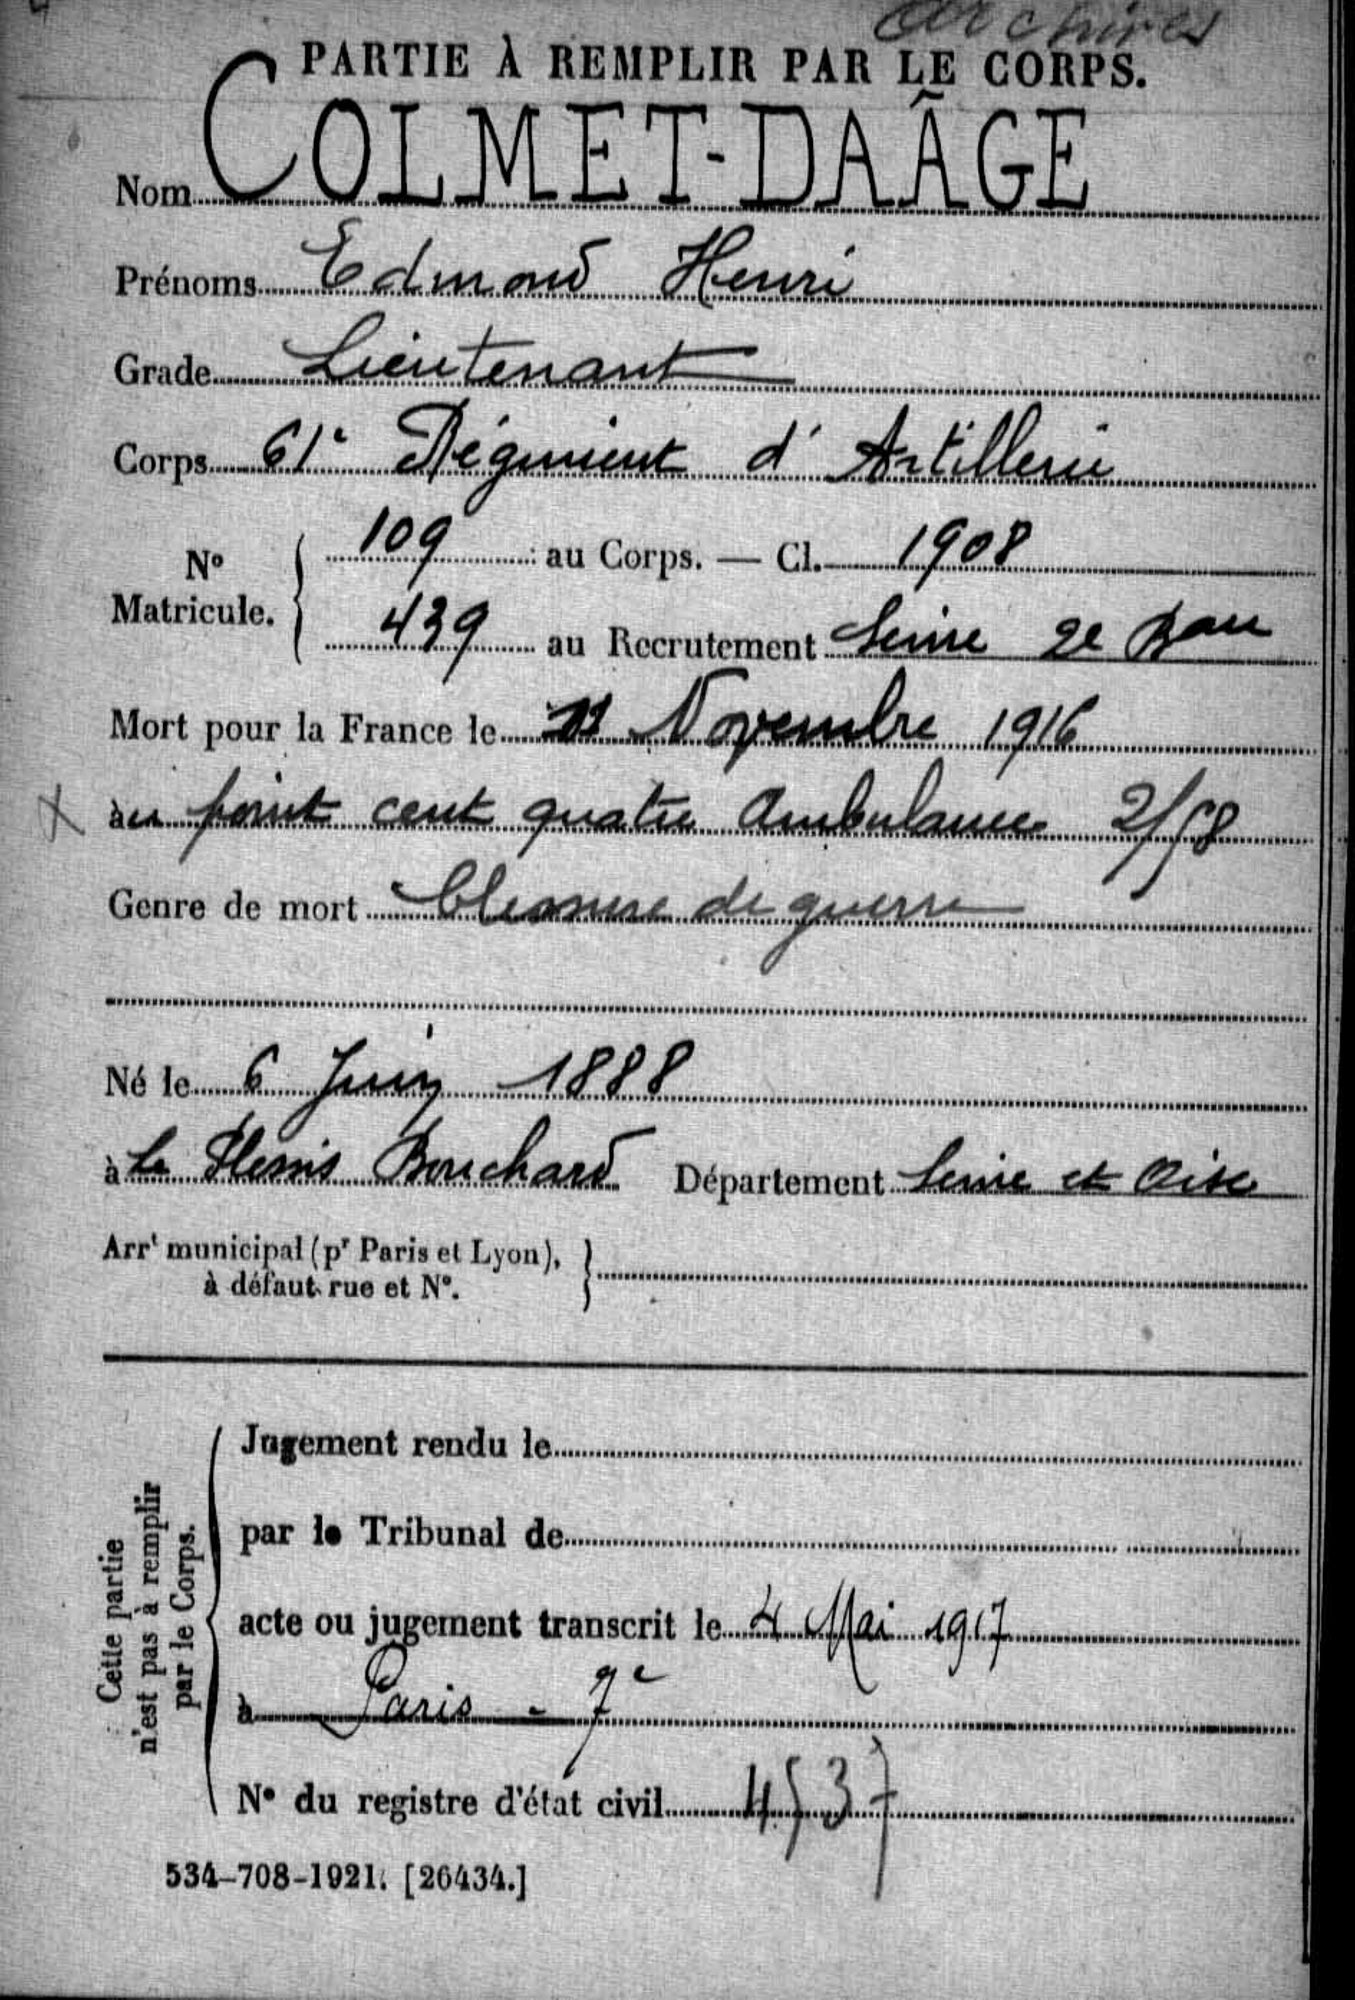 archives
PARTIE À REMPLIR PAR LE CORPS.
Nom COLMET-DAÃGE
Prénoms Edmond Henri
Grade Lieutenant
Corps 61e Régiment d'Artillerie
No Matricule. { 109 au Corps. — Cl. 1908
439 au Recrutement Seine 2e Bau
Mort pour la France le Novembre 1916
au point cent quatre Ambulance 2/58
Genre de mort blessure de guerre
Né le 6 Juin 1888
à le Plessis Bouchard Département Seine et Oise
Arrt municipal (pr Paris et Lyon), }
à défaut rue et No.
Cette partie
n'est pas à remplir
par le Corps.
Jugement rendu le
par le Tribunal de
acte ou jugement transcrit le 4 Mai 1917
à Paris - 7e
No du registre d'état civil 4537
534-708-1921. [26434.]